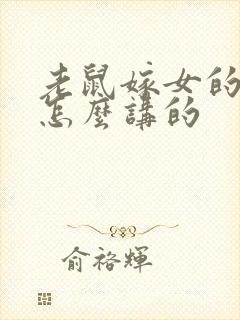 老鼠嫁女的
怎麼講的
俞裕輝